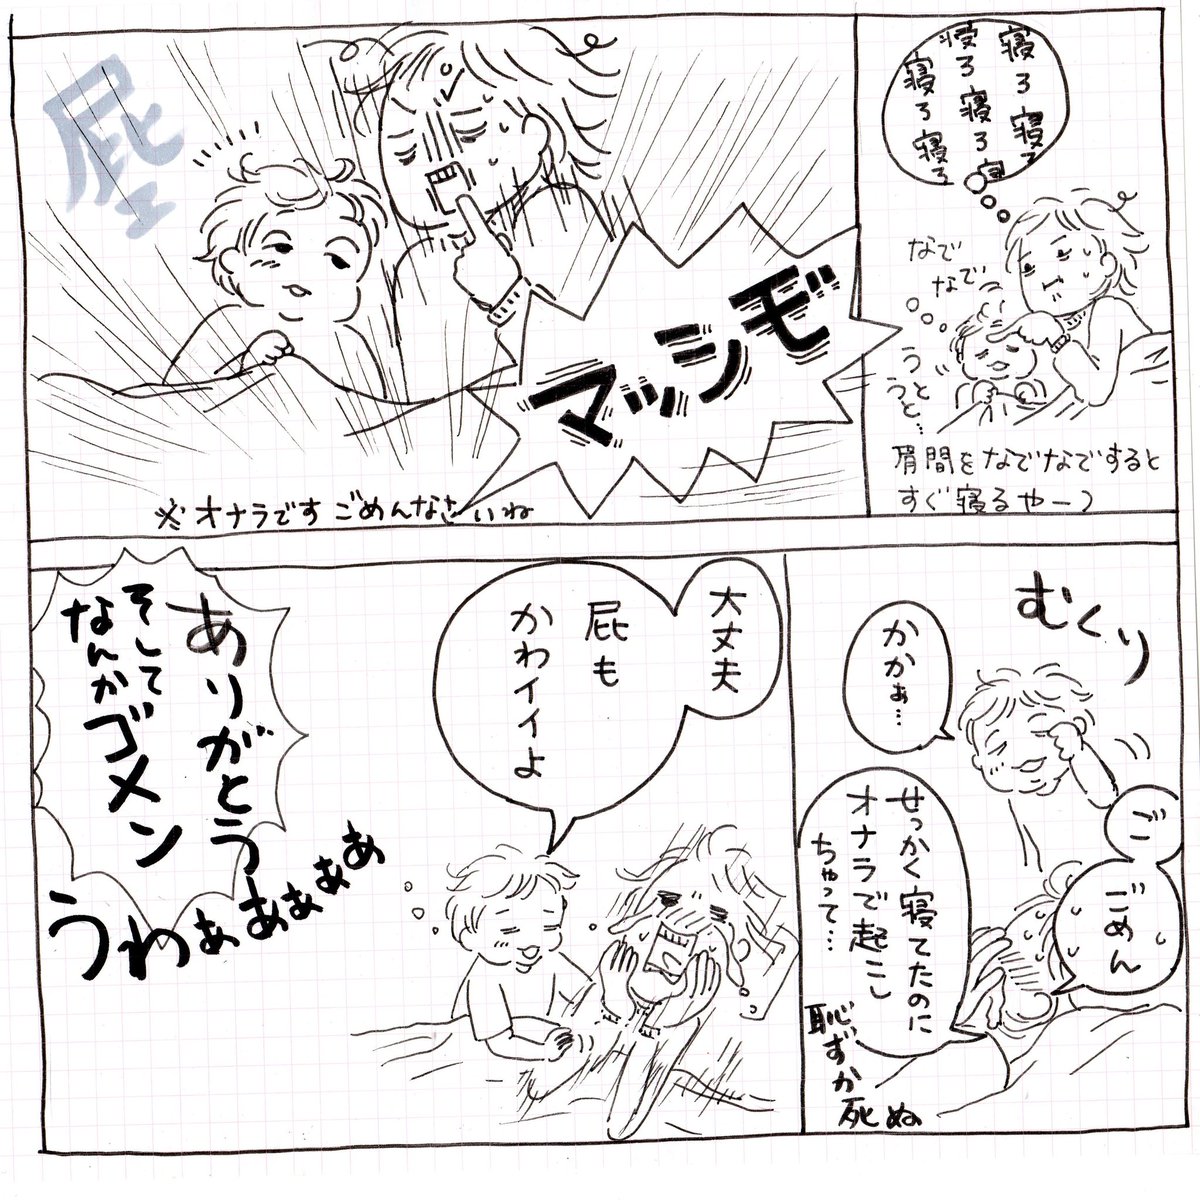 寝ろ 寝ろ
寝ろ 寝ろ 寝
寝ろ 寝ろ
なで
なでっ
うと
うと…
眉間をなでなですると
すぐ寝るやーつ
マッシモ゛
屁
※オナラです ごめんなさいね
むくり
かかぁ…
ご
ごめん
せっかく寝てたのに
オナラで起こし
ちゃって…
恥ずか死ぬ
大丈夫
屁も
かわイイよ
ありがとう
そして
なんかゴメン
うわぁぁぁぁぁ